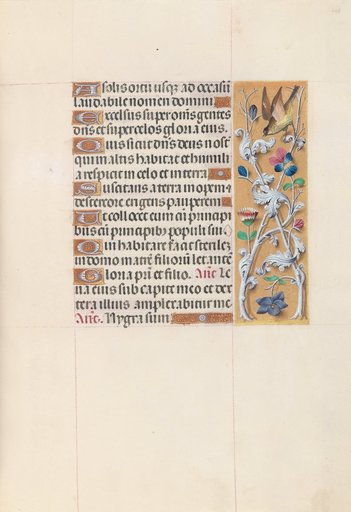 A solis ortu usq; ad occasū
laudabile nomen domini
Excelsus super oñs gentes
dñs et super celos gloria eius.
Quis sicut dñs deus nost
qui in altis habitat et humili
a respicit in celo et in terra
Suscitans a terra inopem
et de stercore erigens pauperem
Ut collocet eum cū principi
bus cū principibꝰ populi sui
Qui habitare facit sterilez
in domo matrē filiorū letantē
Gloria patri et filio. Añt. Le
na eius sub capite meo et dex
tera illius amplexabitur me
Añt. Nygra sum